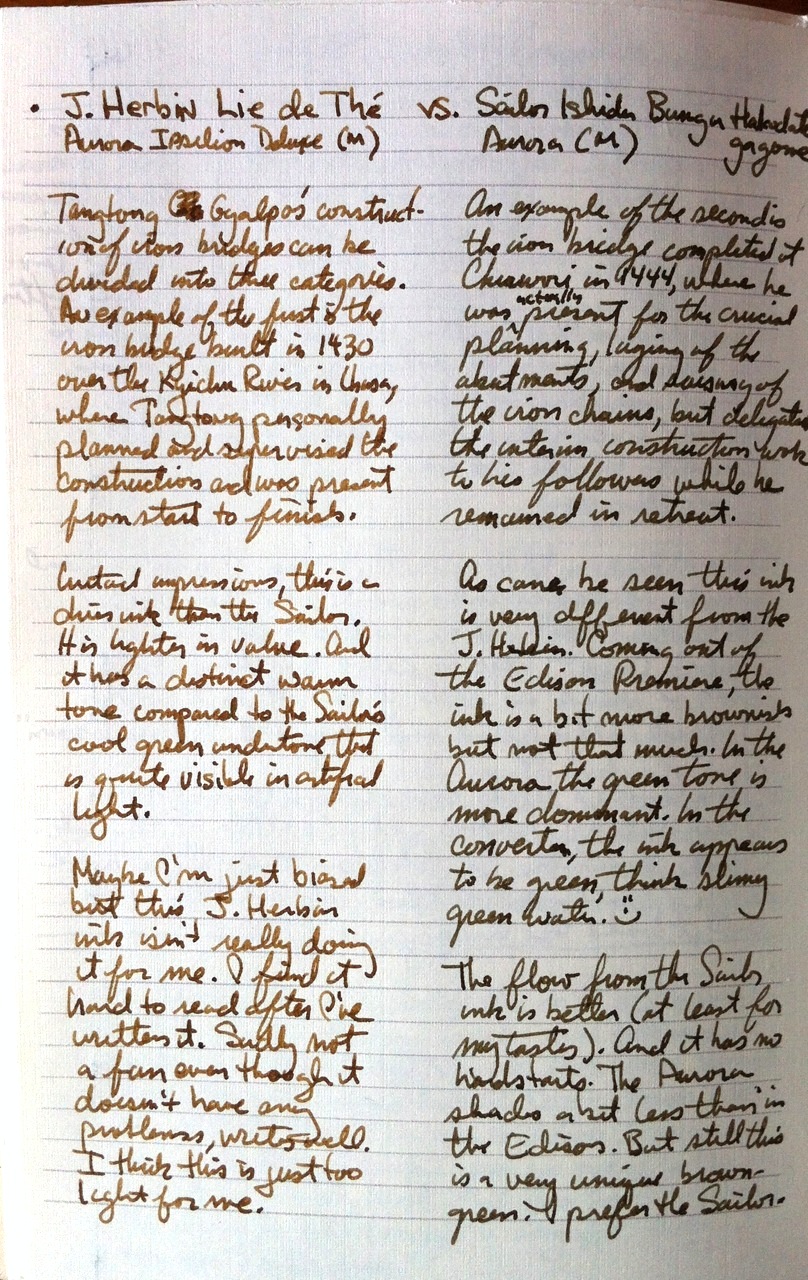 • J. Herbin Lie de Thé vs. Sailor Ishida Bungu Hakodate
Aurora Ipsilion Deluxe (M) Aurora (M) gagome
Tangtong Gyalpo's construct-
ion of iron bridges can be
divided into three categories.
An example of the first is the
iron bridge built in 1430
over the Kyichu River in Lhasa,
where Tangtong personally
planned and supervised the
construction and was present
from start to finish.
Initial impressions, this is a
drier ink than the Sailor.
It is lighter in value. And
it has a distinct warm
tone compared to the Sailor's
cool green undertone that
is quite visible in artificial
light.
Maybe I'm just biased
but this J. Herbin
ink isn't really doing
it for me. I find it
hard to read after I've
written it. Sadly not
a fan even though it
doesn't have any
problems, writes well.
I think this is just too
light for me.
An example of the second is
the iron bridge completed at
Chuwori in 1444, where he
was actually present for the crucial
planning, laying of the
abutments, and raising of
the iron chains, but delegated
the interim construction work
to his followers while he
remained in retreat.
As can be seen this ink
is very different from the
J. Herbin. Coming out of
the Edison Premiere, the
ink is a bit more brownish
but not that much. In the
Aurora the green tone is
more dominant. In the
converter, the ink appears
to be green, think slimy
green water.
The flow from the Sailor
ink is better (at least for
my tastes). And it has no
hardstarts. The Aurora
shades a bit less than in
the Edison. But still this
is a very unique brown-
green. I prefer the Sailor.